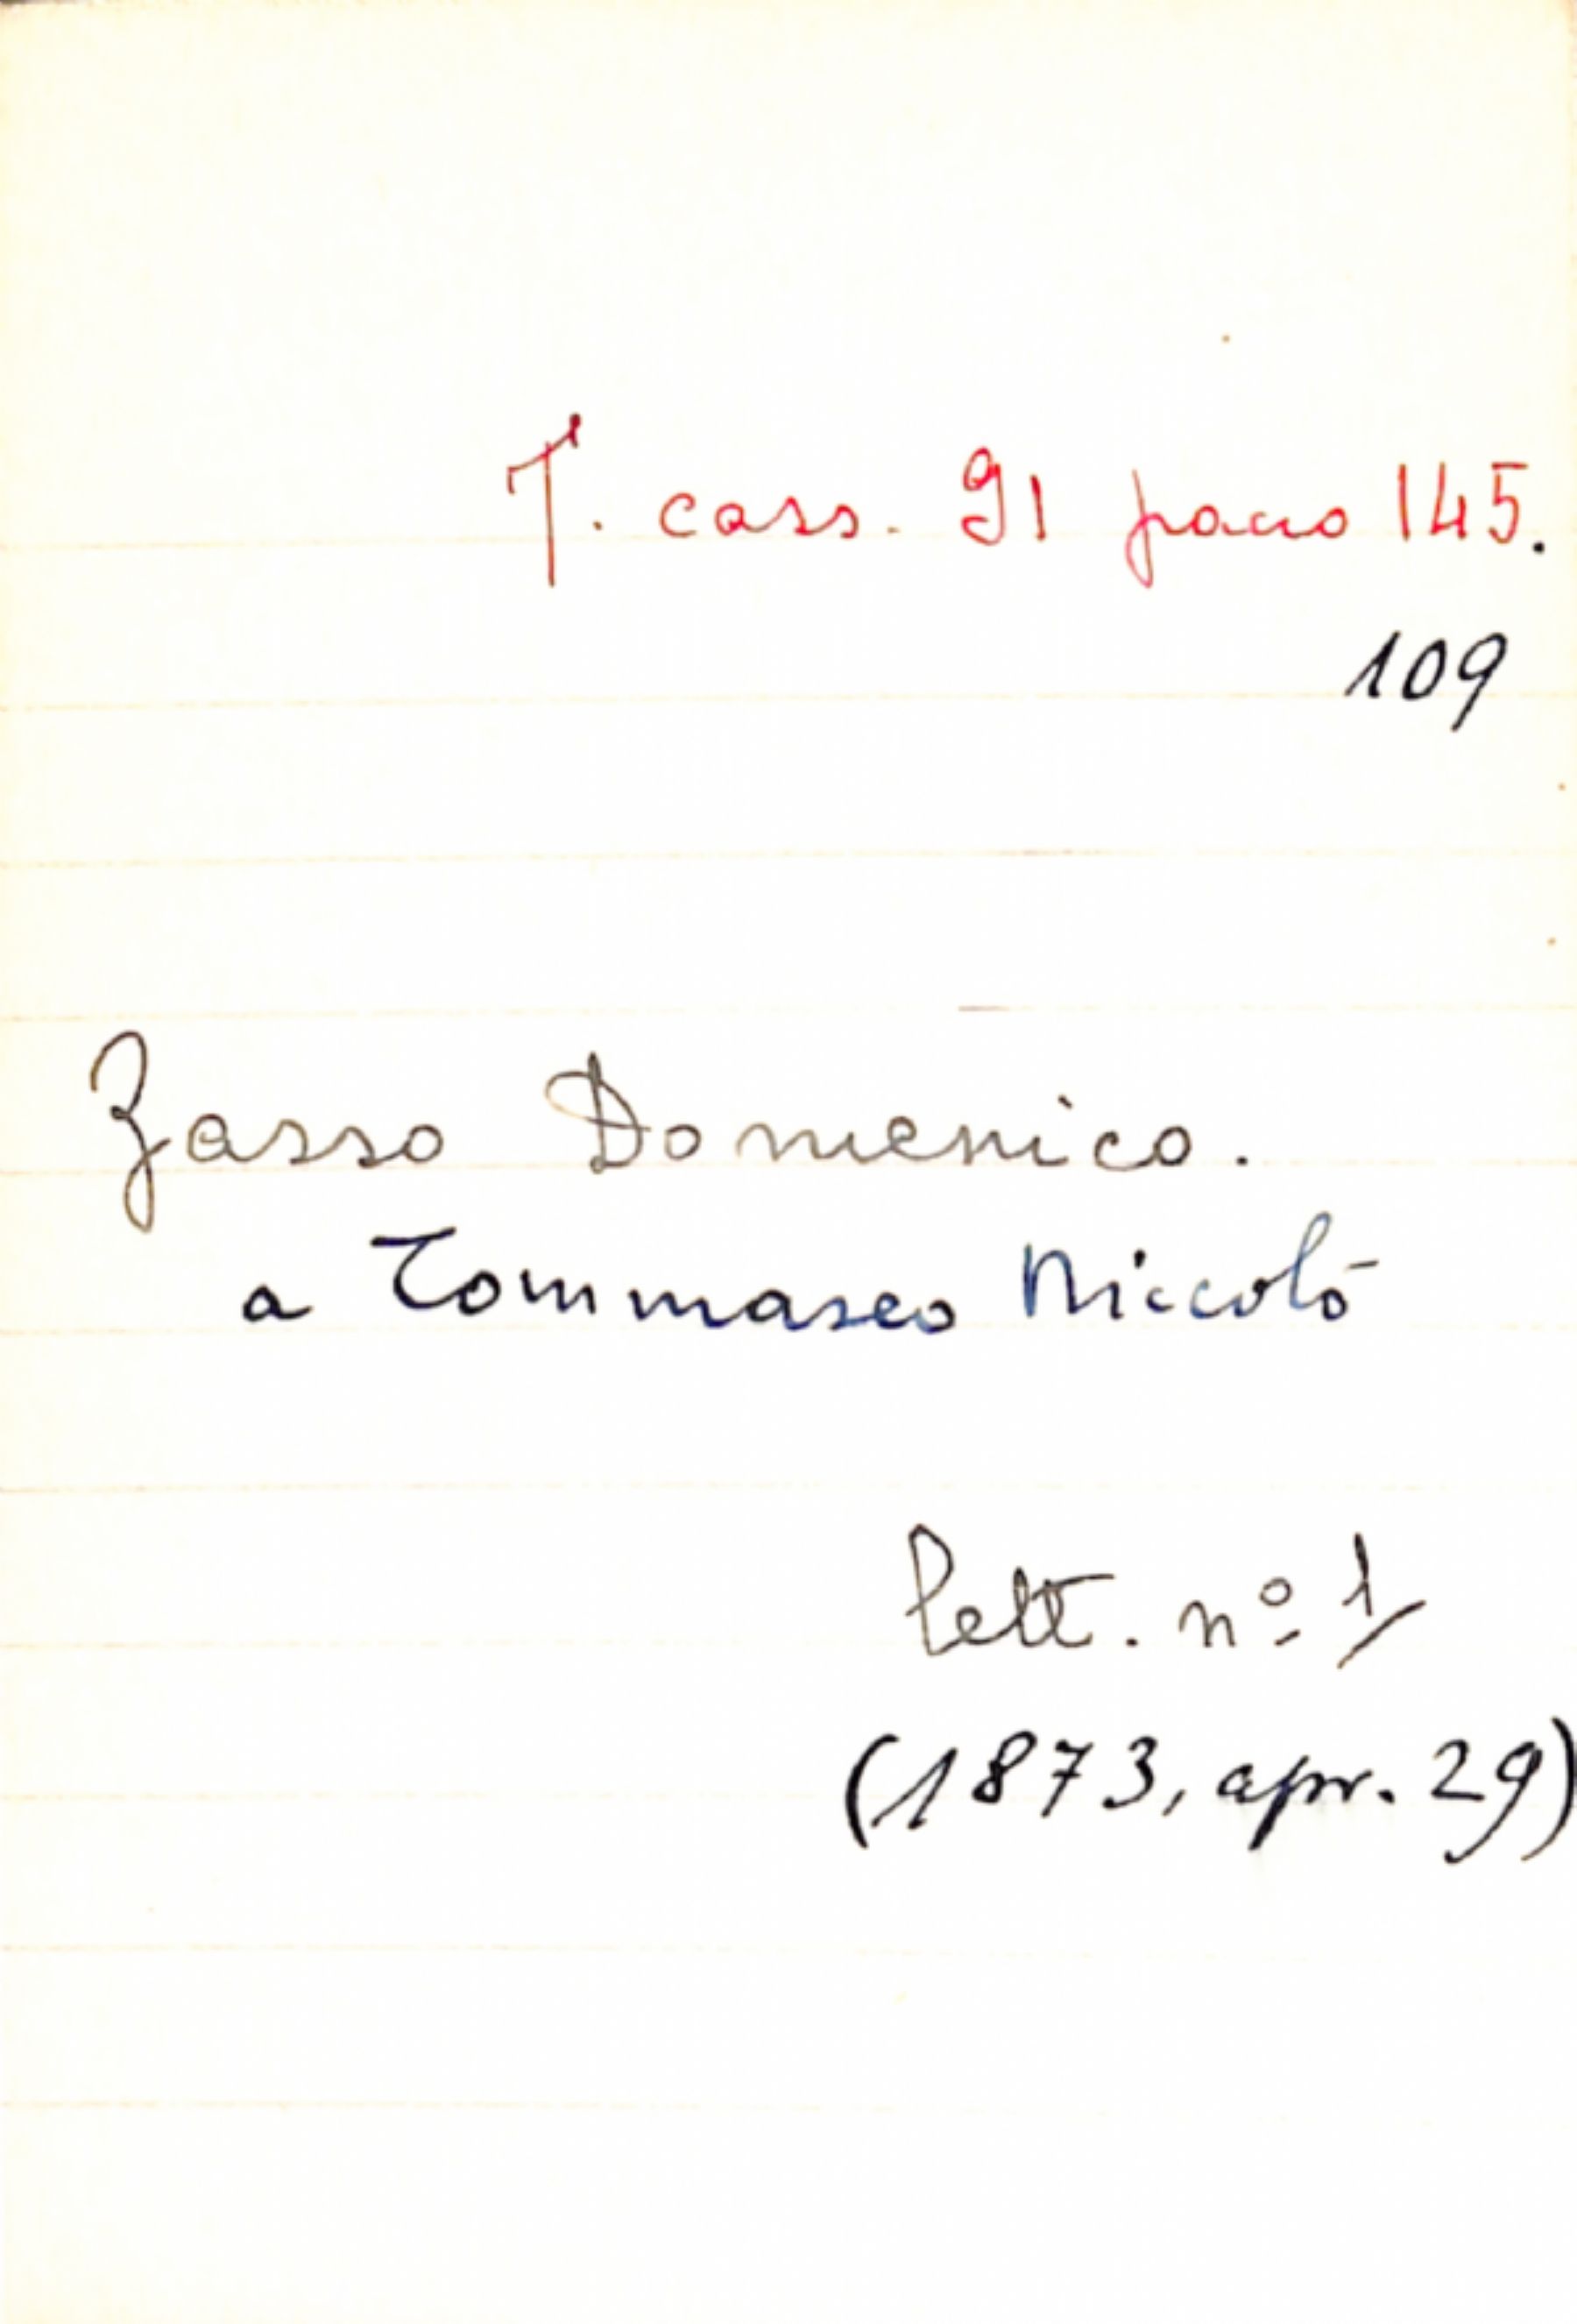 T. cass. 91 pacco 145.
109
Zasso Domenico.
a Tommaseo Niccolò
lett. nº 1
(1873, apr. 29)